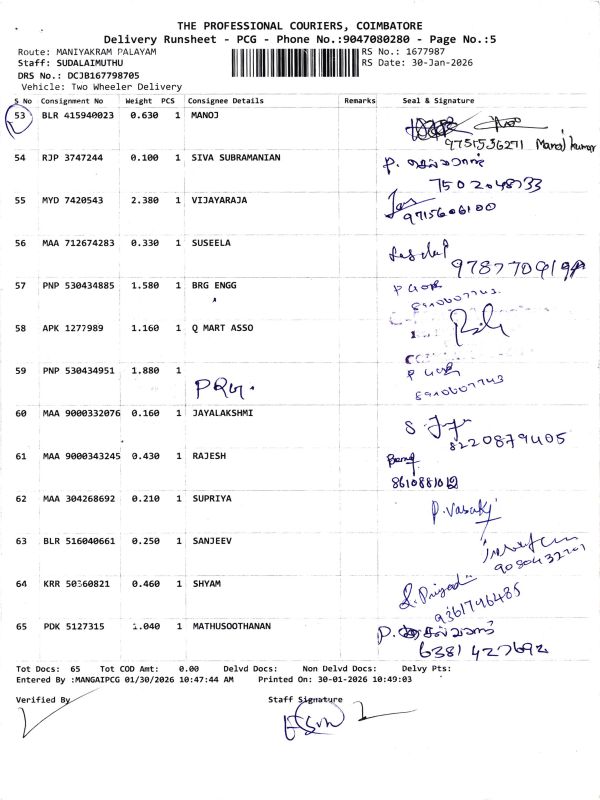 THE PROFESSIONAL COURIERS, COIMBATORE
Delivery Runsheet - PCG - Phone No.:9047080280 - Page No.:5
Route: MANIYAKRAM PALAYAM
RS No.: 1677987
Staff: SUDALAIMUTHU
RS Date: 30-Jan-2026
DRS No.: DCJB167798705
Vehicle: Two Wheeler Delivery
S No Consignment No Weight PCS Consignee Details Remarks Seal & Signature
53 BLR 415940023 0.630 1 MANOJ
9751536271 Manoj kumar
54 RJP 3747244 0.100 1 SIVA SUBRAMANIAN
P. செல்வராஜ்
7502048733
55 MYD 7420543 2.380 1 VIJAYARAJA
9715606100
56 MAA 712674283 0.330 1 SUSEELA
57 PNP 530434885 1.580 1 BRG ENGG
58 APK 1277989 1.160 1 Q MART ASSO
59 PNP 530434951 1.880 1
60 MAA 9000332076 0.160 1 JAYALAKSHMI
8220879405
61 MAA 9000343245 0.430 1 RAJESH
62 MAA 304268692 0.210 1 SUPRIYA
P. Vasaki
63 BLR 516040661 0.250 1 SANJEEV
64 KRR 50360821 0.460 1 SHYAM
9361746485
65 PDK 5127315 1.040 1 MATHUSOOTHANAN
6381427692
Tot Docs: 65 Tot COD Amt: 0.00 Delvd Docs: Non Delvd Docs: Delvy Pts:
Entered By :MANGAIPCG 01/30/2026 10:47:44 AM Printed On: 30-01-2026 10:49:03
Verified By Staff Signature